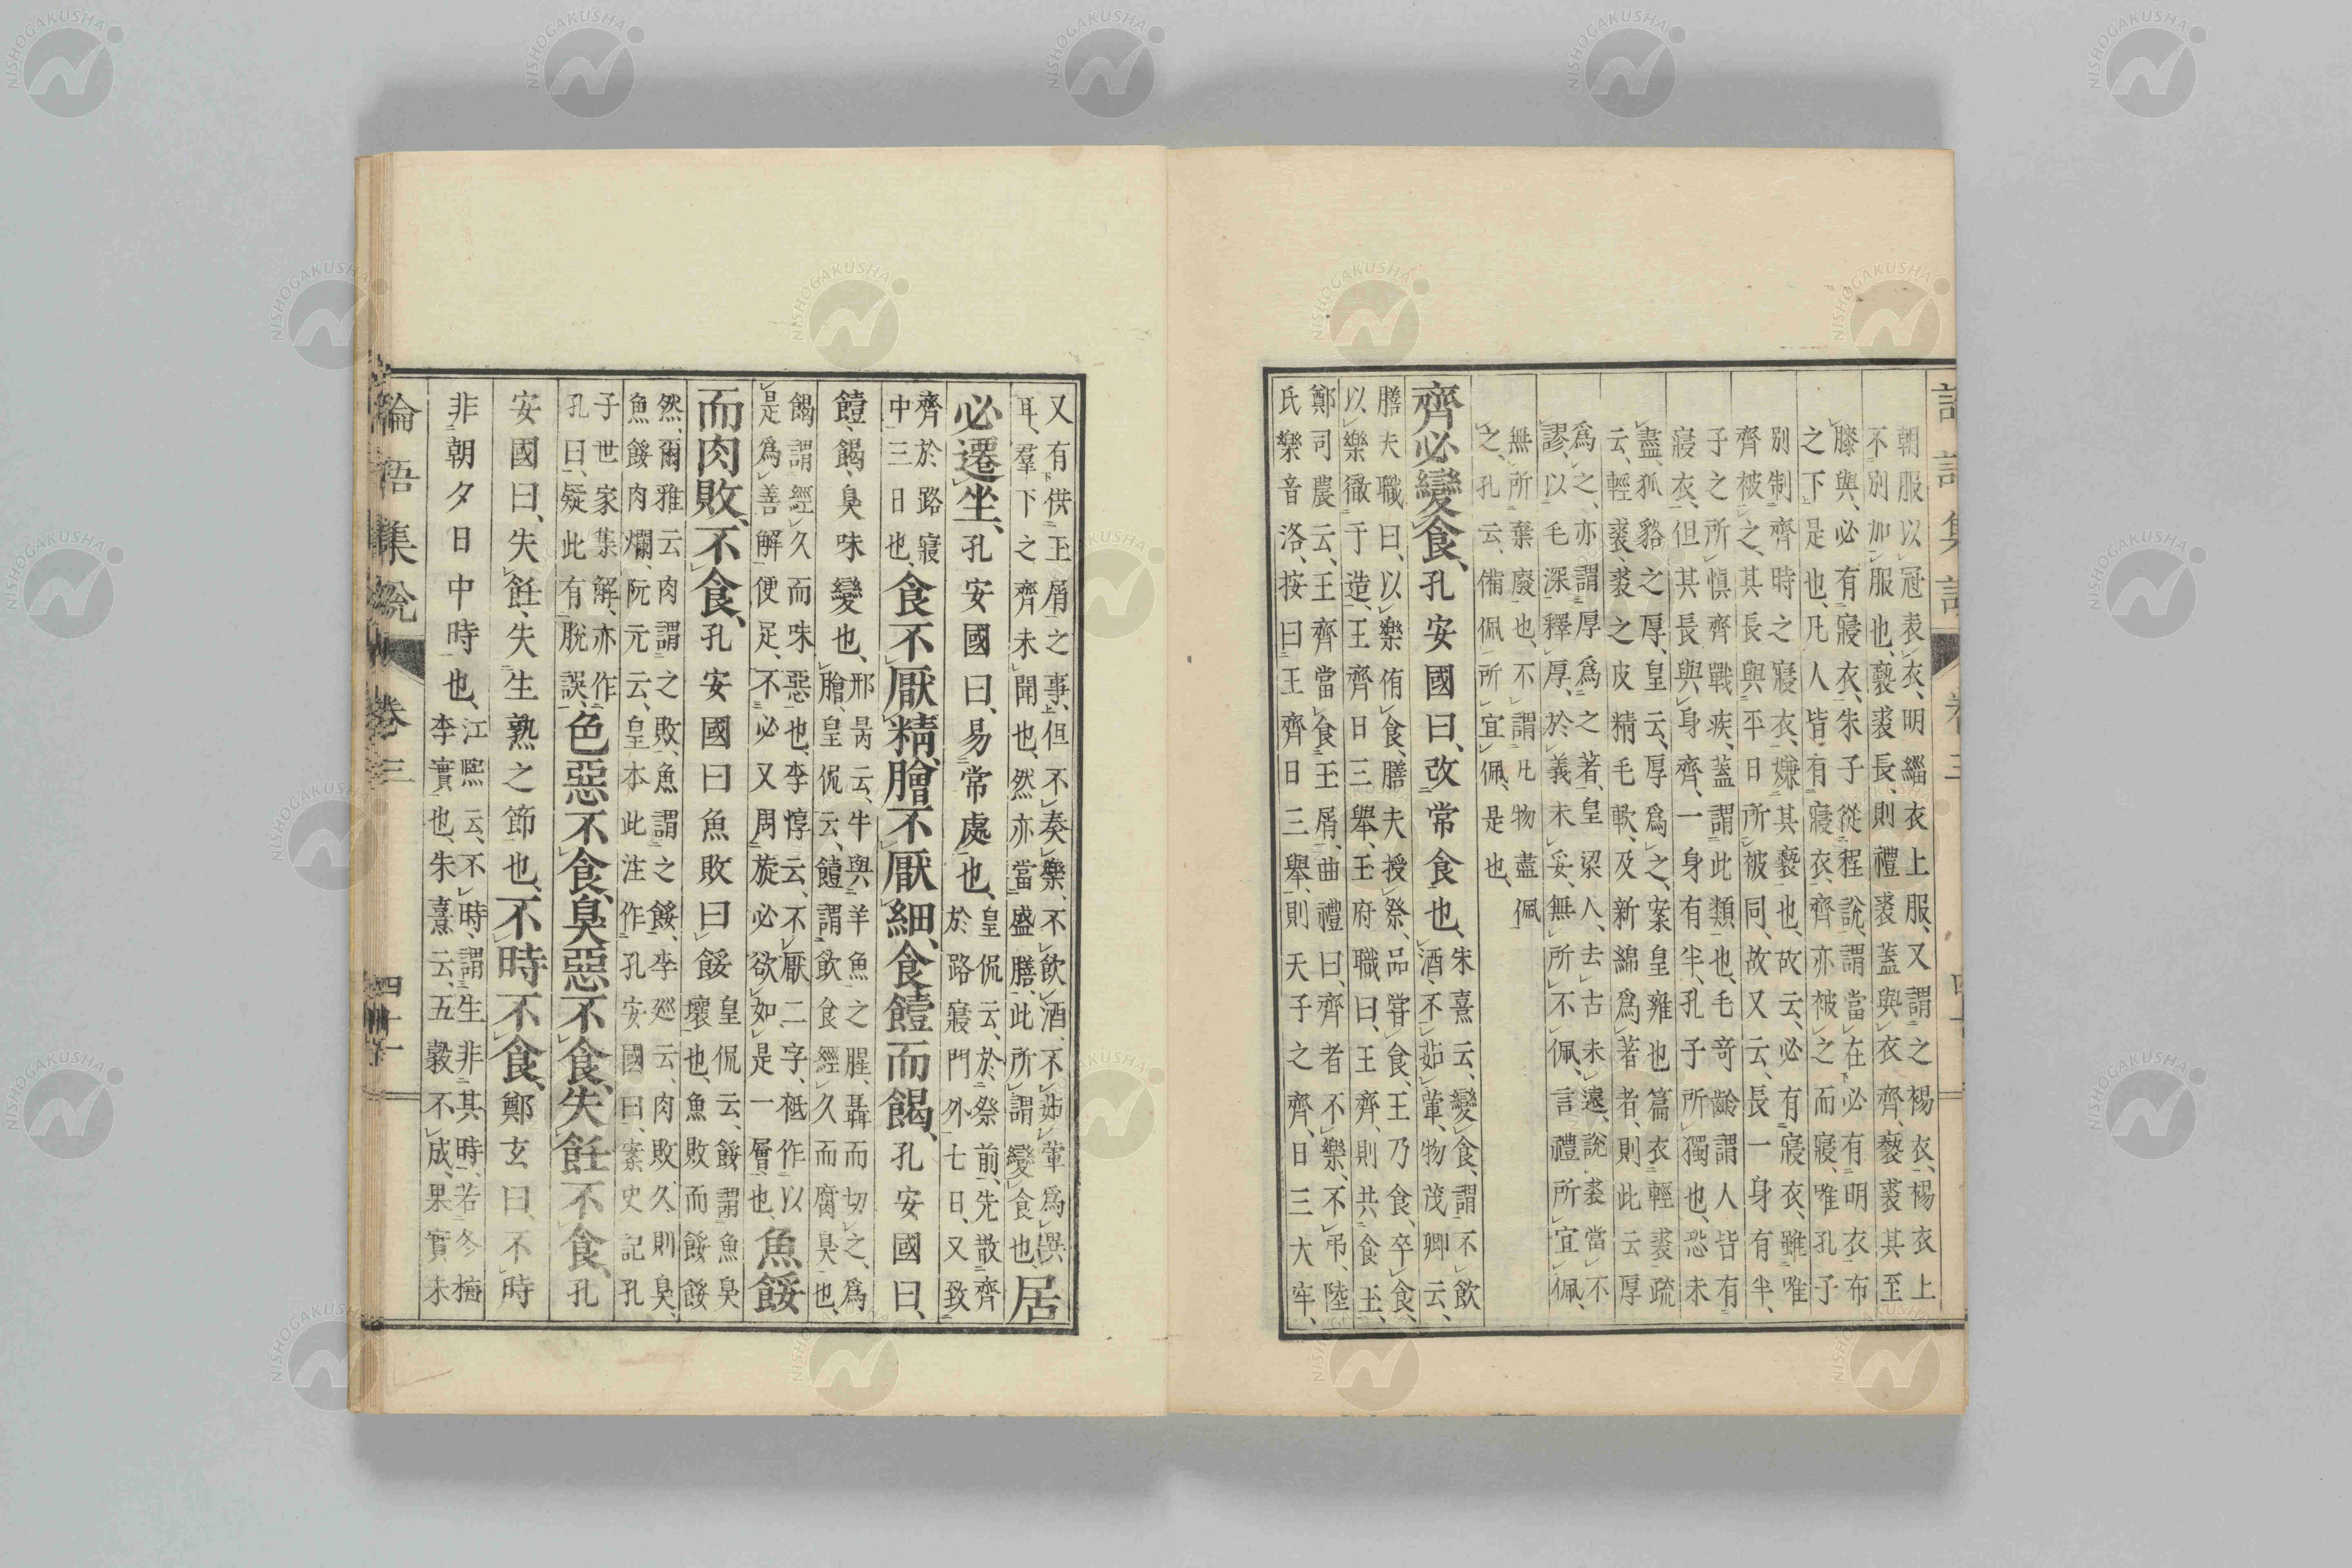 朝服以冠表衣、明緇衣上服、又謂之裼衣、裼衣上
不別加服也、褻裘長、則禮裘蓋與衣齊、褻裘其至
膝與、必有寢衣、朱子從程說、謂當在必有明衣布
之下是也、凡人皆有寢衣、齊亦被之而寢、唯孔子
別制齊時之寢衣、嫌其褻也、故云必有寢衣、雖唯
齊被之、其長與平日所被同、故又云、長一身有半、
子之所慎齊戰疾、蓋謂此類也、毛奇齡謂人皆有
寢衣、但其長與身齊、一身有半、孔子所獨也、恐未
盡、狐貉之厚、皇云、厚爲之、案皇雍也篇衣輕裘疏
云、輕裘裘之皮精毛軟、及新綿爲著者、則此云厚
爲之、亦謂厚爲之著、皇梁人、去古未遠、說裘當不
謬、以毛深釋厚、於義未妥、無所不佩、言禮所宜佩、
無所棄廢也、不謂凡物盡佩
之、孔云、備佩所宜佩、是也、
齊必變食、孔安國曰、改常食也、朱熹云、變食、謂不飲
酒、不茹葷、物茂卿云、
膳夫職曰、以樂侑食、膳夫授祭、品嘗食、王乃食、卒食、
以樂徹于造、王齊日三舉、玉府職曰、王齊、則共食玉、
鄭司農云、王齊當食玉屑、曲禮曰、齊者不樂、不弔、陸
氏樂音洛、按曰王齊日三舉、則天子之齊、日三大牢、
又有供玉屑之事、但不奏樂、不飲酒、不茹葷爲異
耳、羣下之齊未聞也、然亦當盛膳、此所謂變食也、居
必遷坐、孔安國曰、易常處也、皇侃云、於祭前、先散齊
於路寢門外七日、又致
齊於路寢
中三日也、食不厭精、膾不厭細、食饐而餲、孔安國曰、
饐、餲、臭味變也、邢昺云、牛與羊魚之腥、聶而切之、爲
膾、皇侃云、饐謂飲食經久而腐臭也、
餲謂經久而味惡也、李惇云、不厭二字、秪作以
是爲善解便足、不必又周旋必欲如是一層也、魚餒
而肉敗、不食、孔安國曰魚敗曰餒、皇侃云、餒謂魚臭
壞也、魚敗而餒餒
然、爾雅云肉謂之敗、魚謂之餒、李巡云、肉敗久、則臭、
魚餒肉爛、阮元云、皇本此注作孔安國曰、案史記孔
子世家集解亦作
孔曰、疑此有脫誤、色惡不食、臭惡不食、失飪不食、孔
安國曰、失飪、失生熟之節也、不時不食、鄭玄曰、不時
非朝夕日中時也、江熙云、不時、謂生非其時、若冬梅
李實也、朱熹云、五穀不成、果實未
論語集說 卷三 四十一
NISHOGAKUSHA